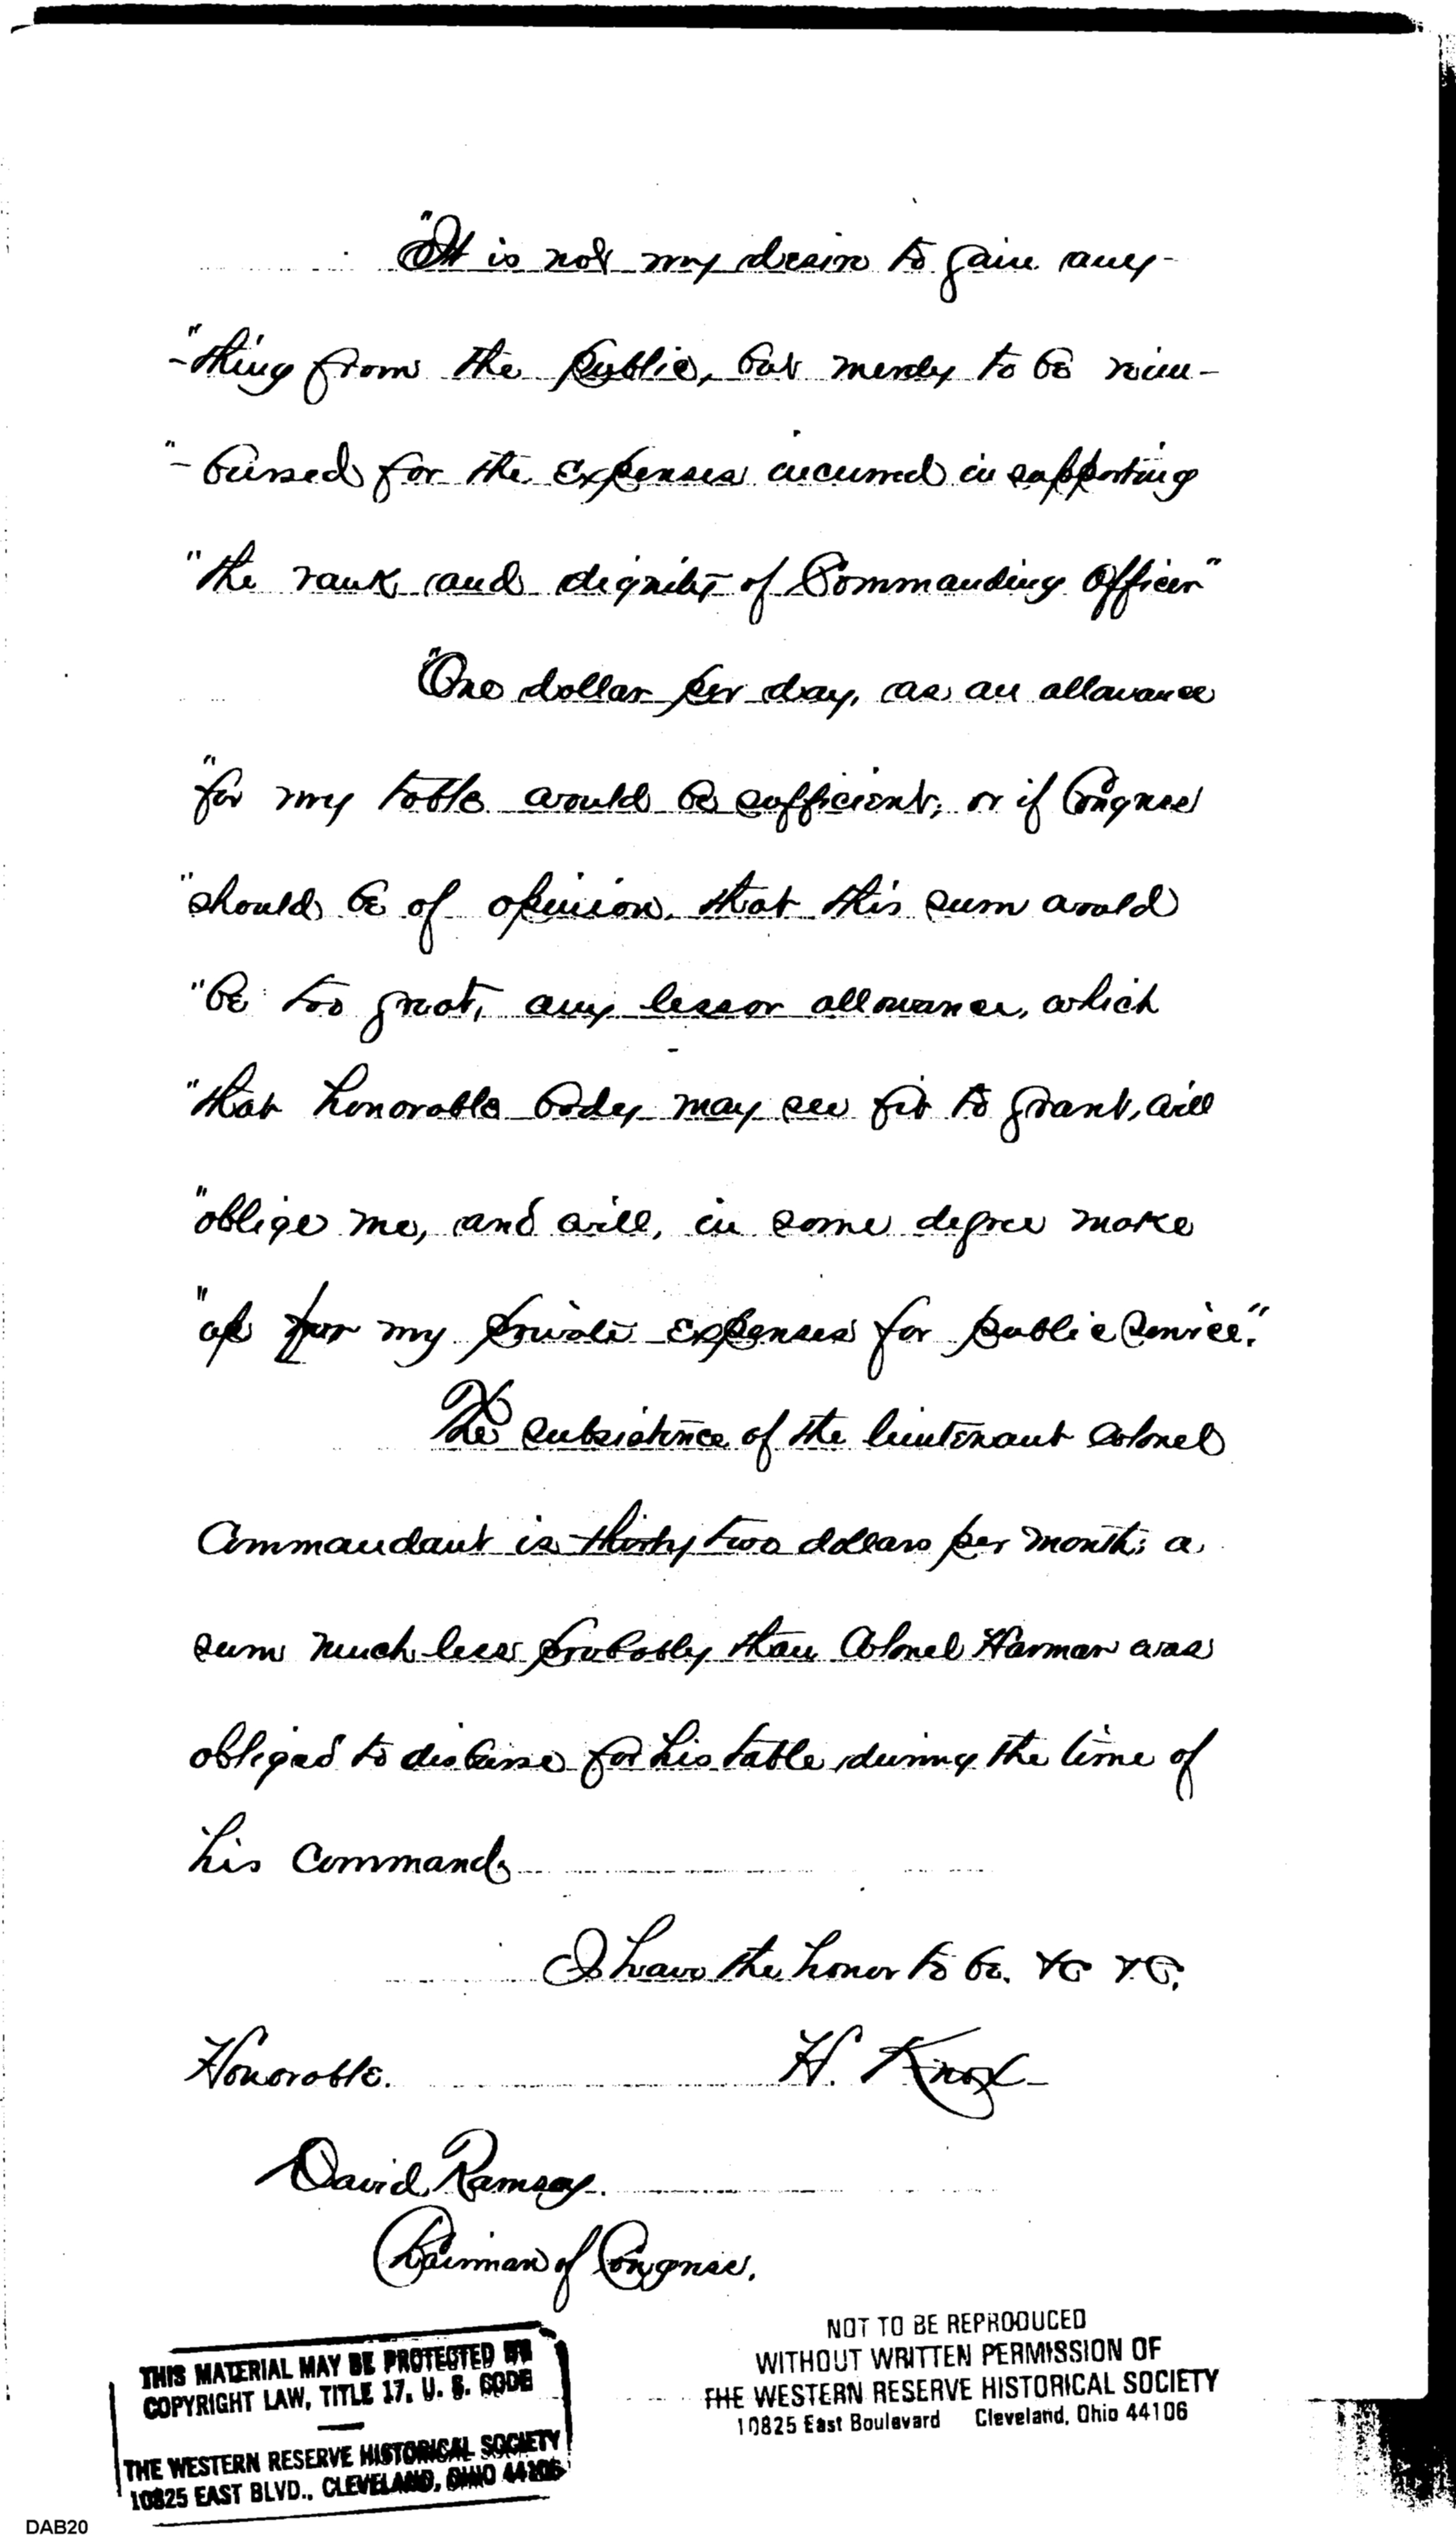 "It is not my desire to gain any-
"-thing from the public, but merely to be reim-
"-bursed for the expenses incurred in supporting
"the rank and dignity of Commanding Officer"
"One dollar per day, as an allowance
"for my table would be sufficient, or if Congress
"should be of opinion, that this sum would
"be too great, any lessor allowance, which
"that honorable body may see fit to grant, will
"oblige me, and will, in some degree make
"up for my private expenses for public service."
The subsistence of the lieutenant Colonel
Commandant is thirty two dollars per month; a
sum much less probably than Colonel Harmar was
obliged to disburse for his table during the time of
his command.
I have the honor to be. &c &c.
Honorable. H. Knox
David Ramsay.
Chairman of Congress.
THIS MATERIAL MAY BE PROTECTED BY
COPYRIGHT LAW, TITLE 17, U. S. CODE
THE WESTERN RESERVE HISTORICAL SOCIETY
10825 EAST BLVD., CLEVELAND, OHIO 44106
NOT TO BE REPRODUCED
WITHOUT WRITTEN PERMISSION OF
THE WESTERN RESERVE HISTORICAL SOCIETY
10825 East Boulevard Cleveland, Ohio 44106
DAB20